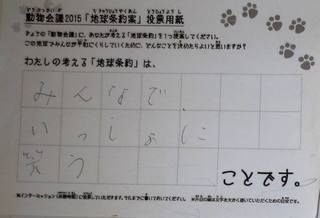 動物会議2015「地球条約案」投票用紙
きょうの「動物会議」に、あなたが考える「地球条約」を1つ提案してください。
この地球でみんなが平和にくらしていくために、どんなことを決めたらよいと思いますか?
わたしの考える「地球条約」は、
みんなで、
いっしょに
笑う
ことです。